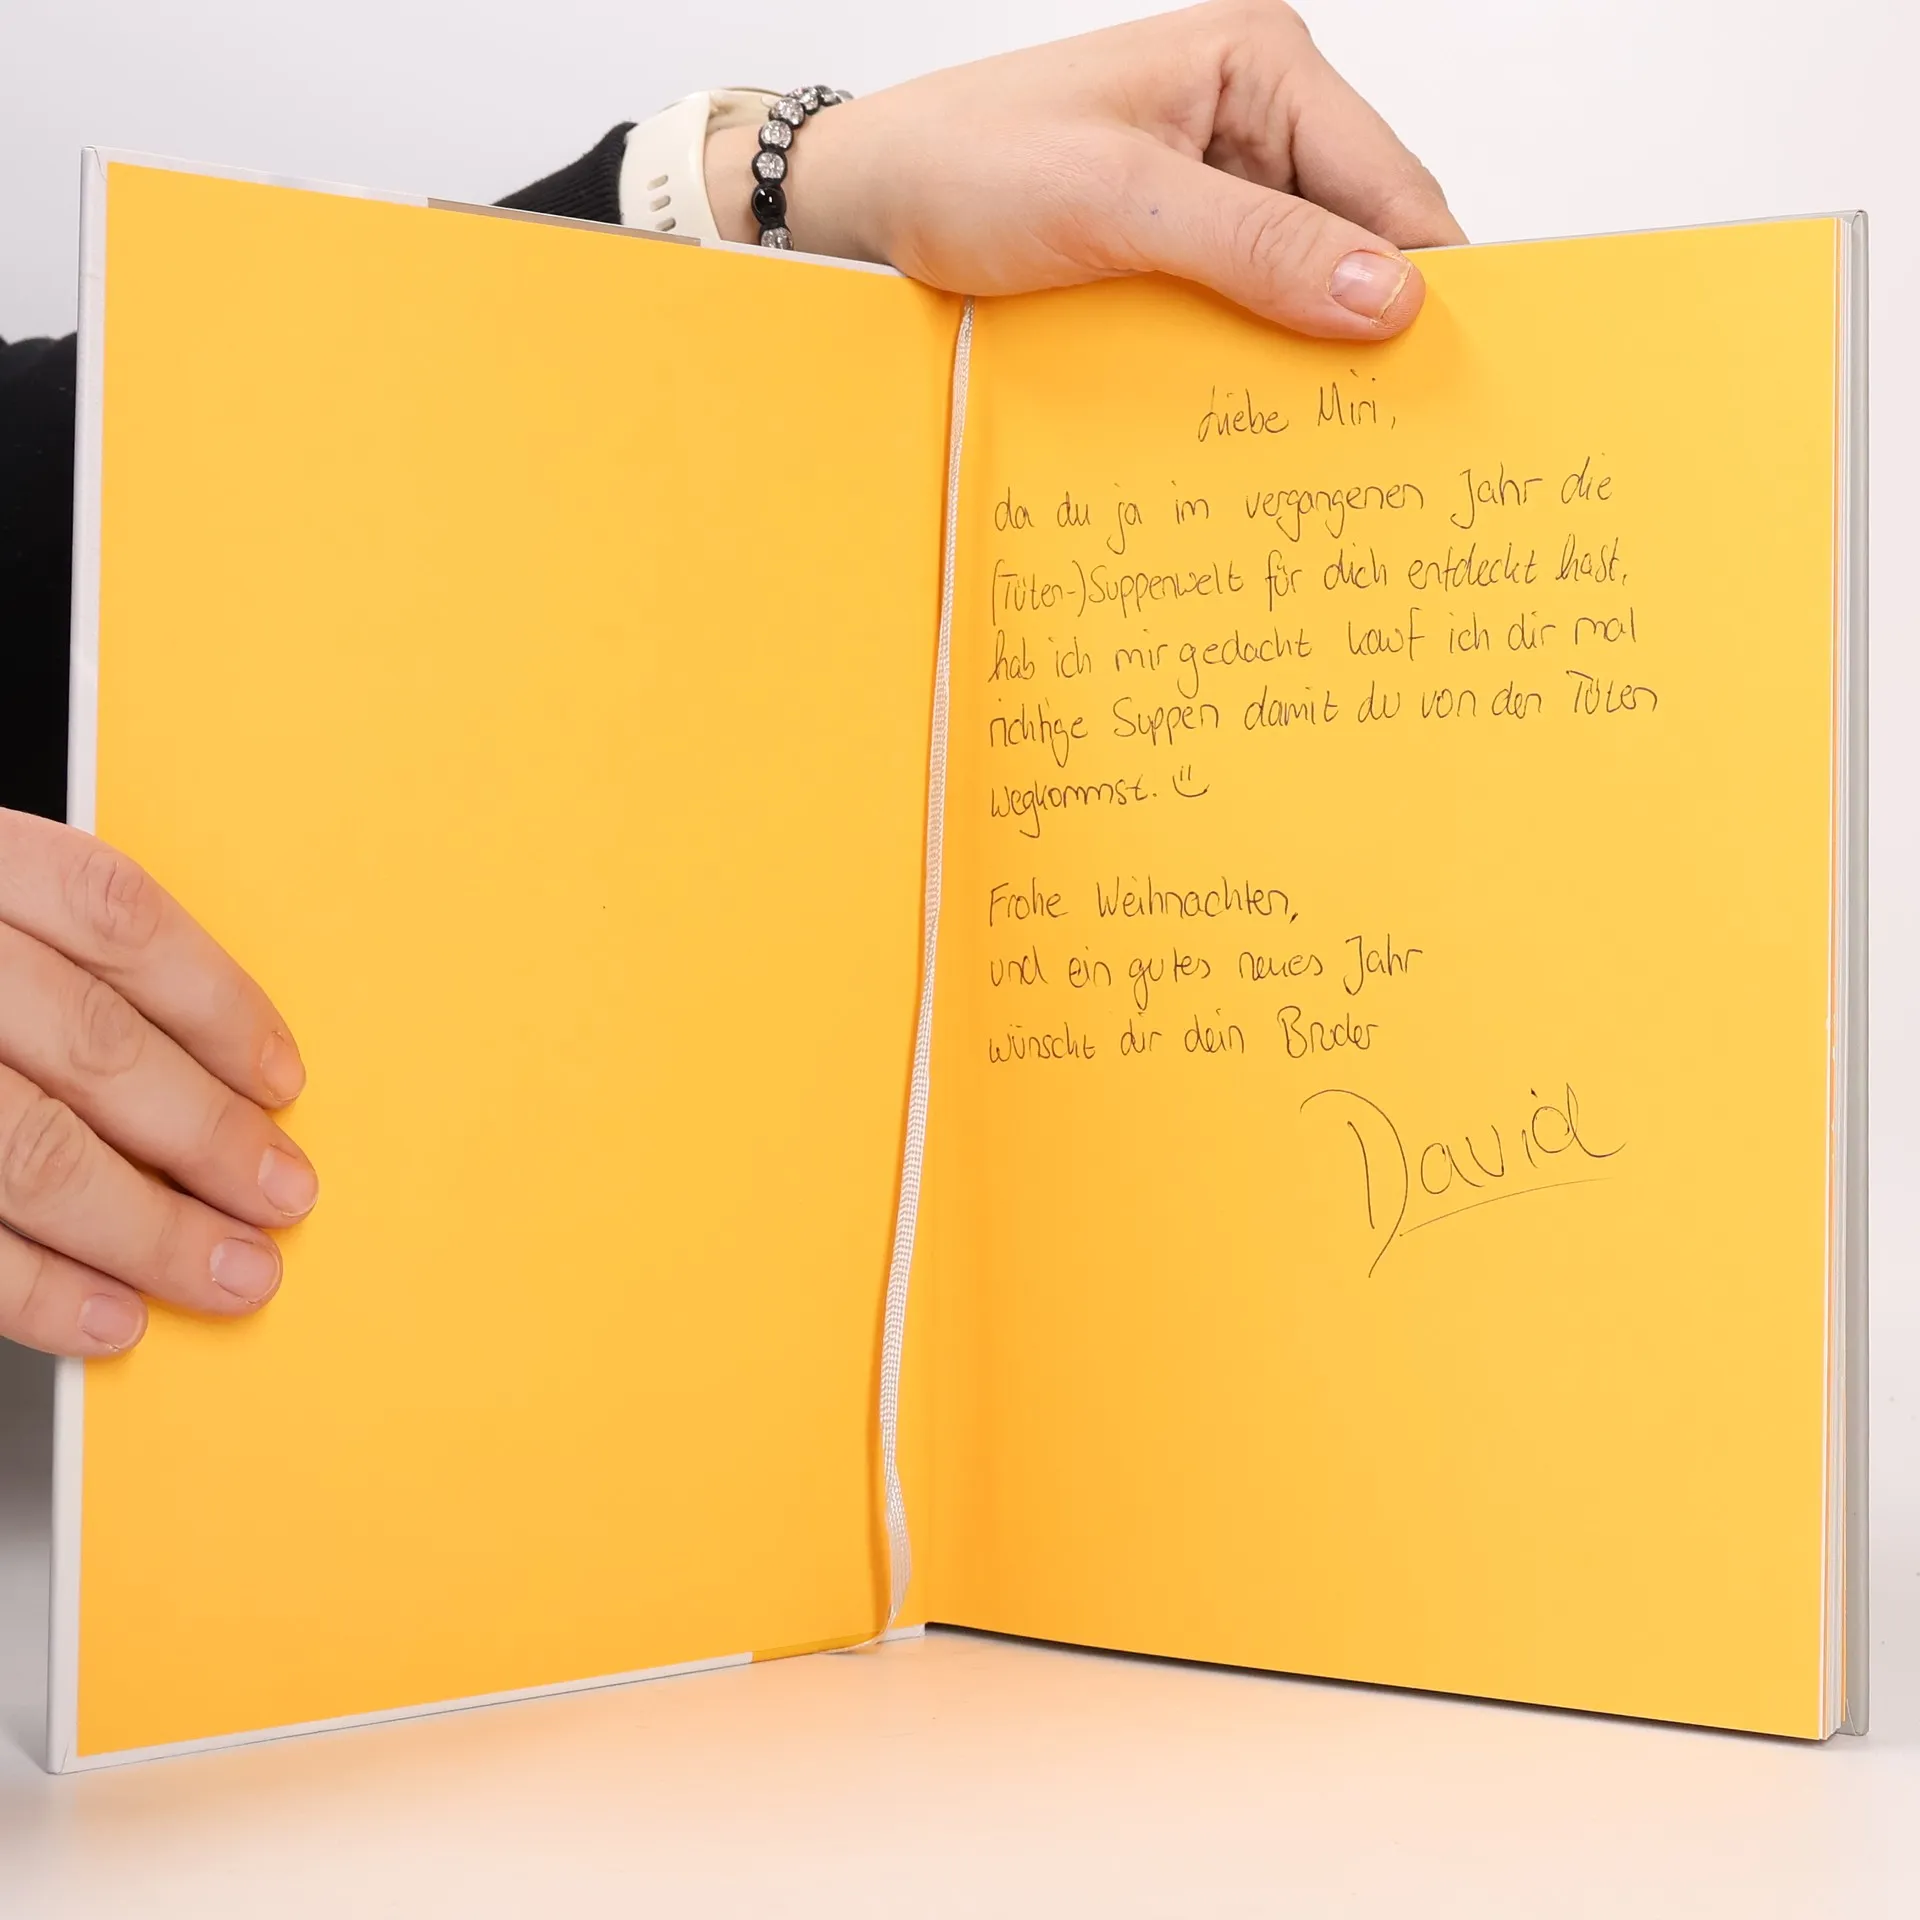 Liebe Miri,
da du ja im vergangenen Jahr die
(Tüten-)Suppenwelt für dich entdeckt hast,
hab ich mir gedacht kauf ich dir mal
richtige Suppen damit du von den Tüten
wegkommst. 
Frohe Weihnachten,
und ein gutes neues Jahr
wünscht dir dein Bruder
David